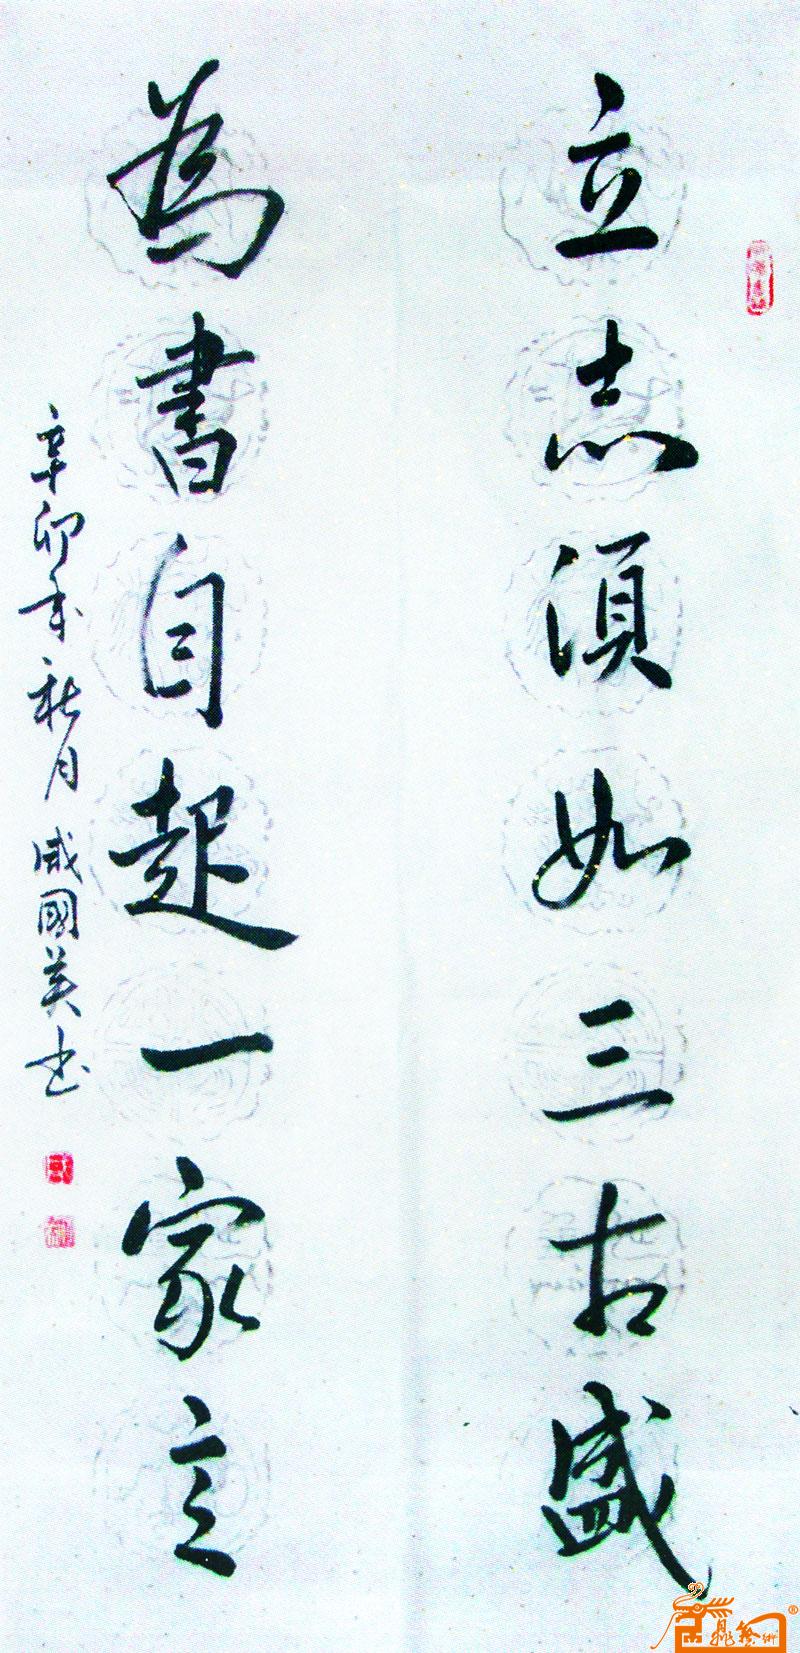 立志須如三古盛
為書自起一家言
辛卯年秋月戚國美书